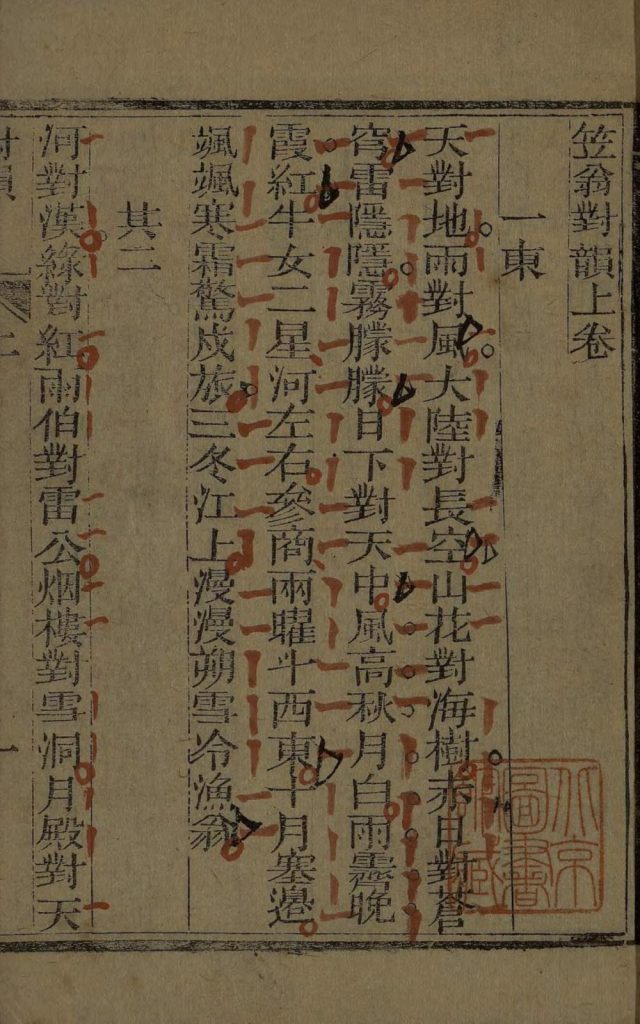 笠翁對韻上卷
一東
天對地雨對風大陸對長空山花對海樹赤日對蒼
穹雷隱隱霧朦朦日下對天中風高秋月白雨霽晚
霞紅牛女二星河左右參商兩曜斗西東十月塞邊
颯颯寒霜驚戍旅三冬江上漫漫朔雪冷漁翁
其二
河對漢綠對紅雨伯對雷公烟樓對雪洞月殿對天
對韻